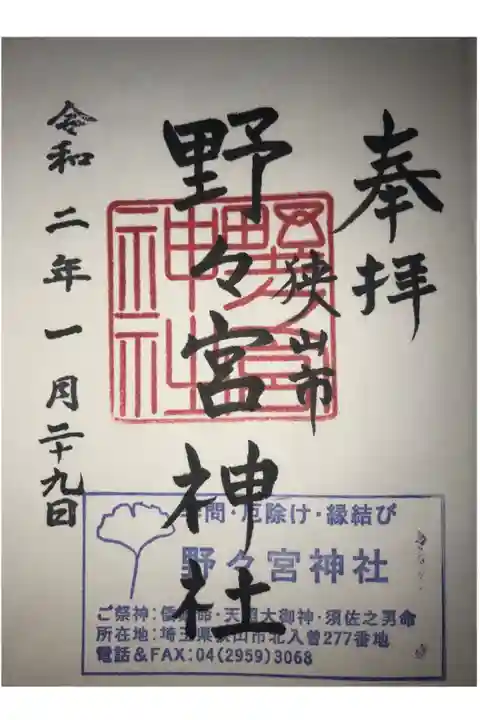 奉拝
狭山市
野々宮神社
令和二年一月二十九日
野々宮神社
問・厄除け・縁結び
野々宮神社
ご祭神：倭 命・天照大御神・須佐之男命
所在地：埼玉県狭山市北入曽277番地
電話＆FAX：04(2959)3068